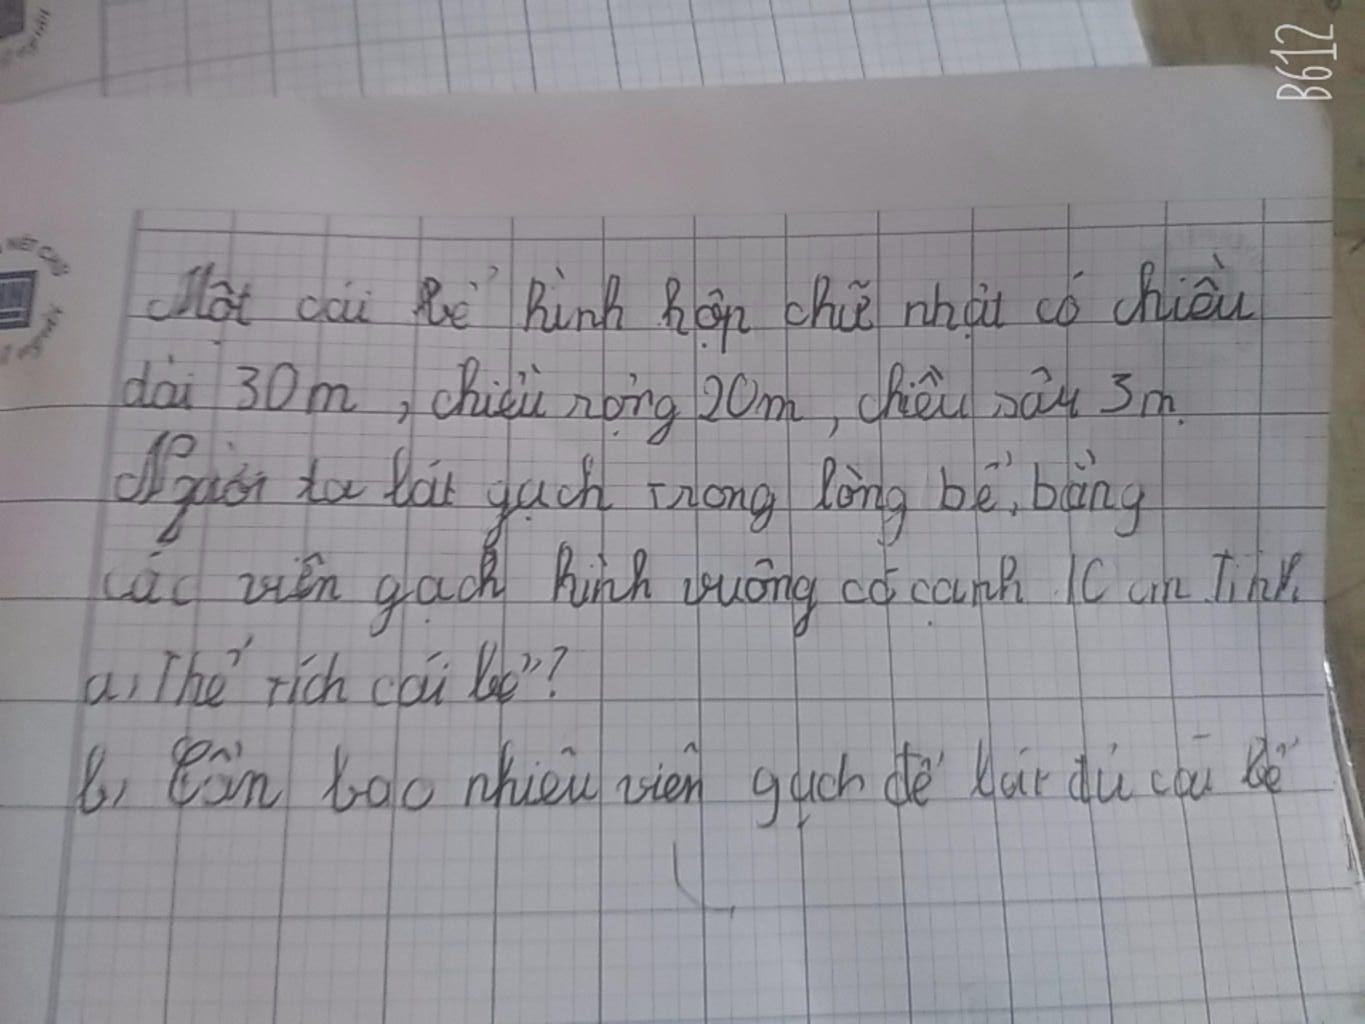 B612
NÉT CHỮ
Một cái bể hình hộp chữ nhật có chiều
dài 30m, chiều rộng 20m, chiều sâu 3m.
Người ta lát gạch trong lòng bể, bằng
các viên gạch hình vuông có cạnh 10 cm Tính
a, Thể tích cái bể?
b, Cần bao nhiêu viên gạch để lát đủ cái bể